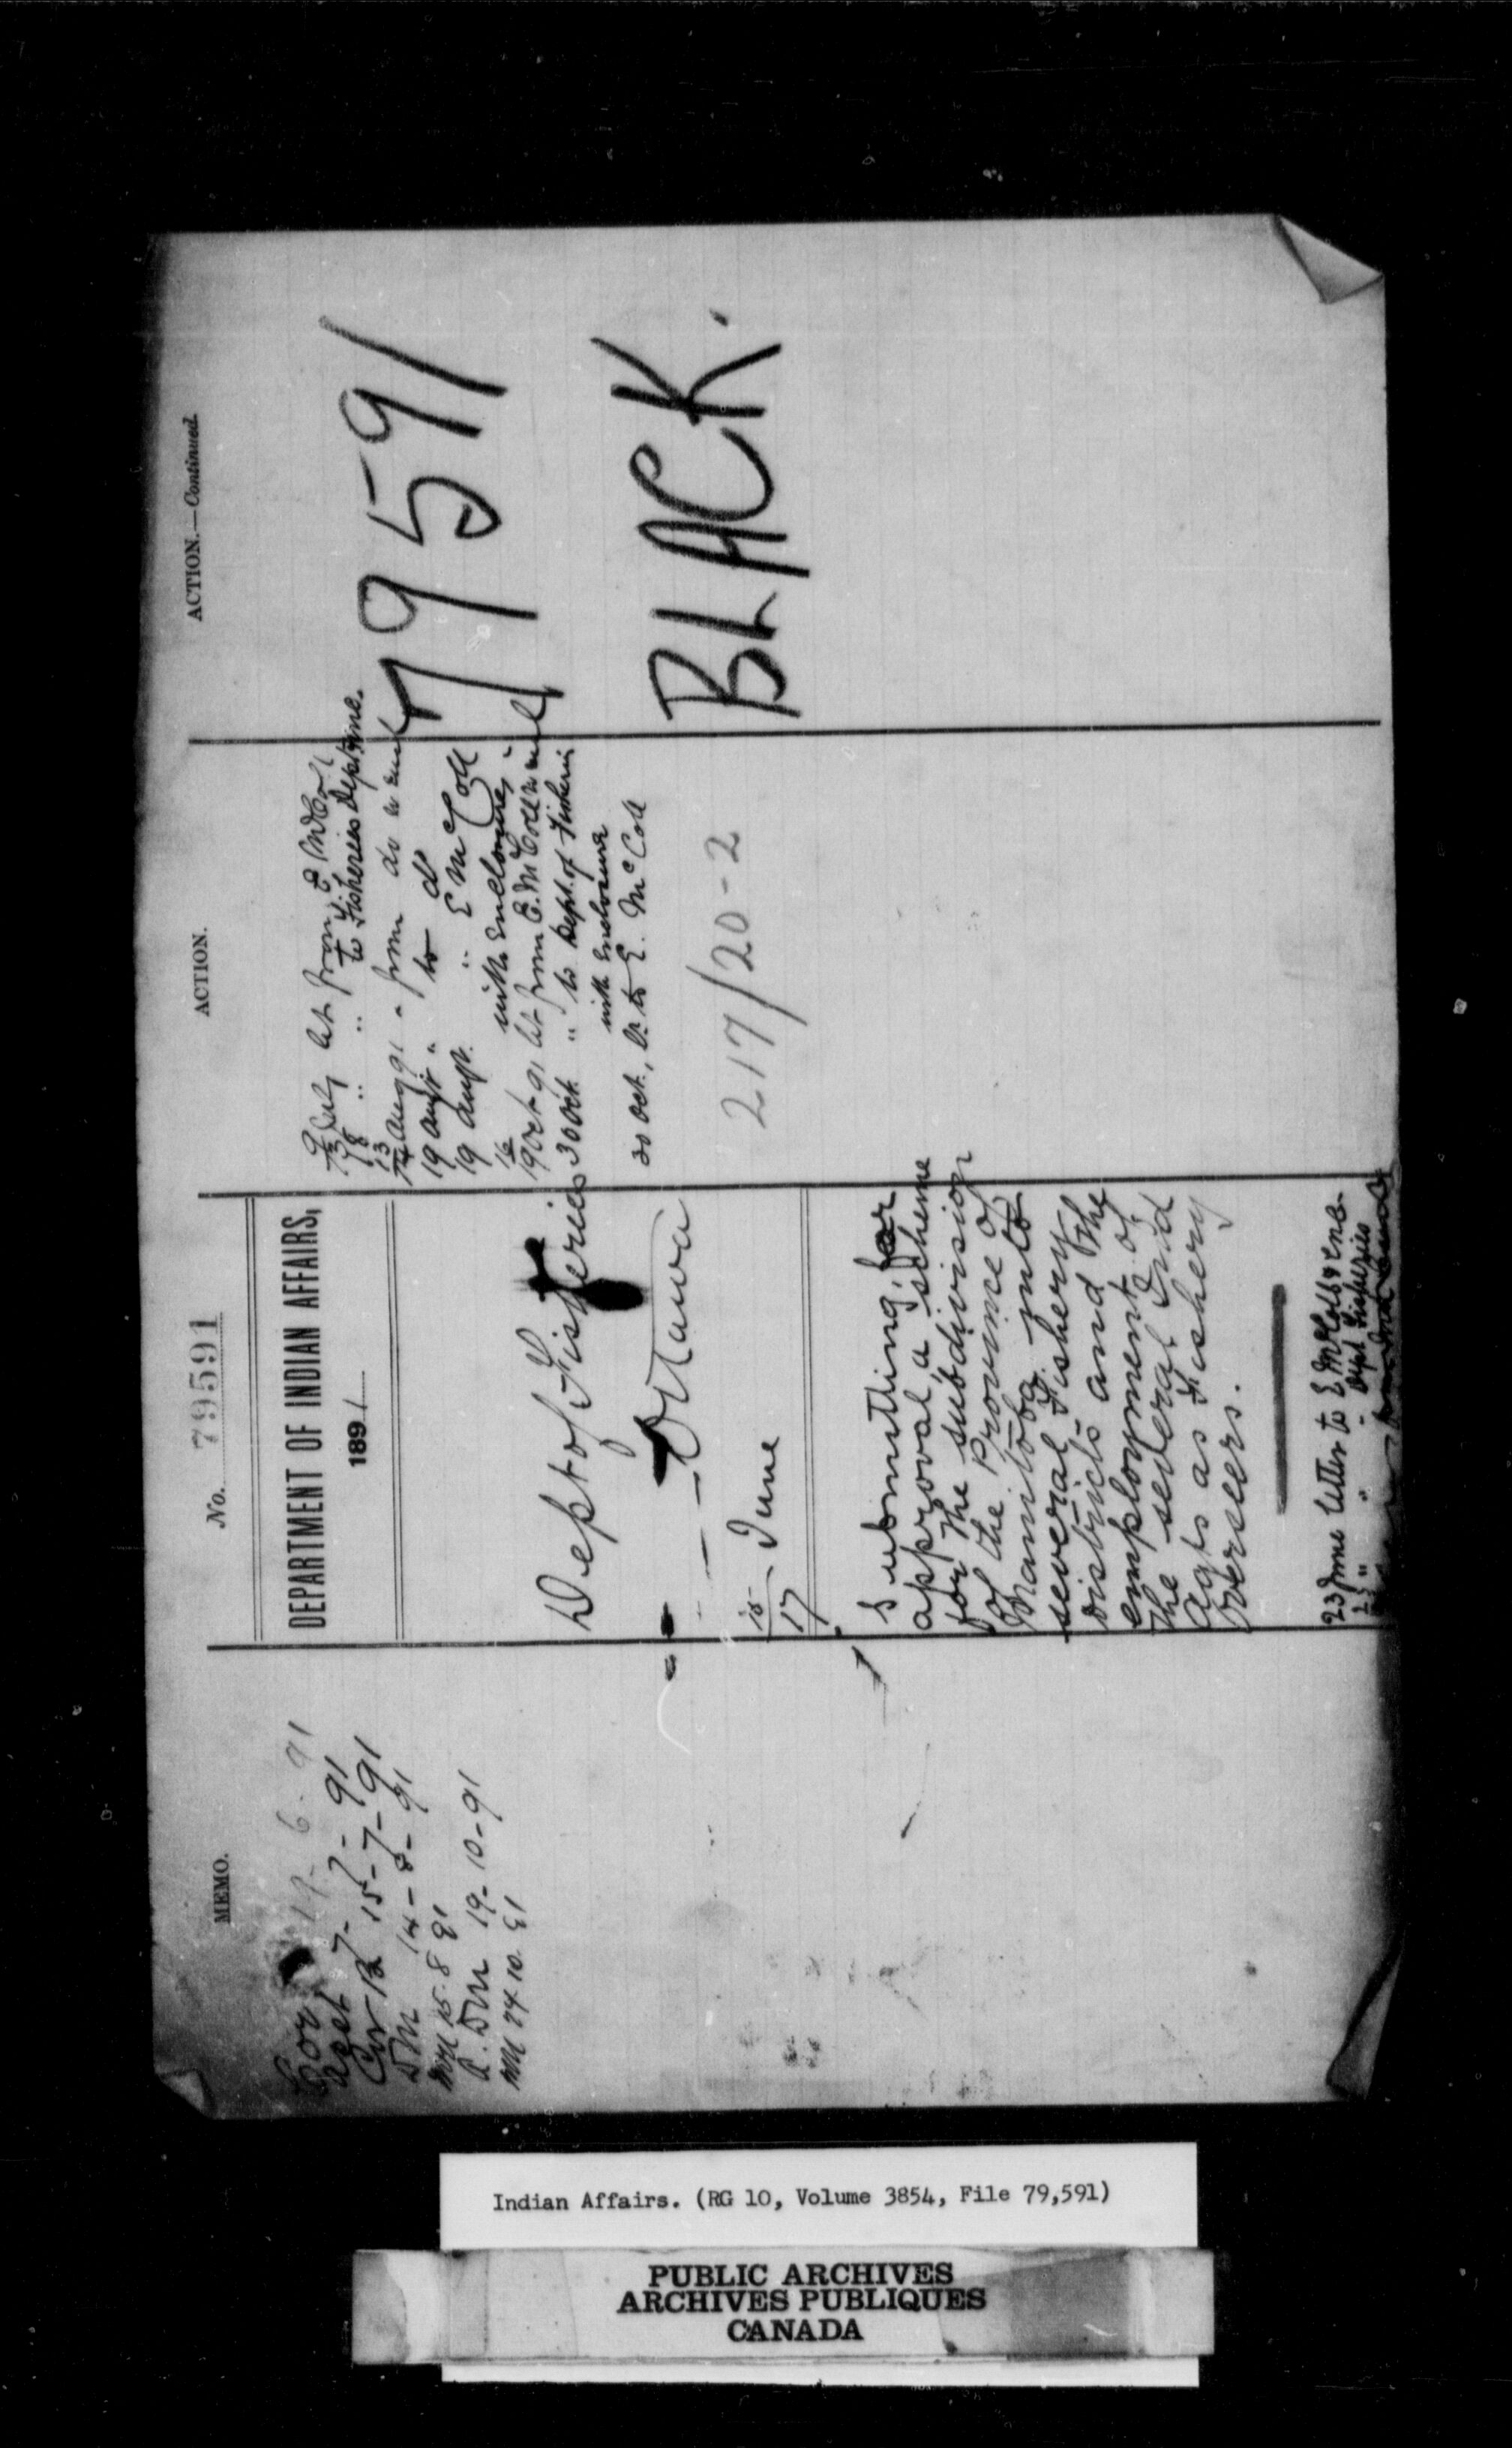 MEMO.
19-6-91
7-7-91
15-7-91
DM 14-8-91
15.8.91
DM 19-10-91
24.10.91
No. 79591
DEPARTMENT OF INDIAN AFFAIRS,
1891
Dept of Fisheries
Ottawa
15/17 June
Submitting, for
approval, a scheme
for the subdivision
of the Province of
Manitoba into
several Fishery
Districts and the
employment of
the several Ind
Agts as Fishery
Overseers.
23 June letter to E McColl & Enc.
" " Dept Fisheries
ACTION.
July let from E McColl
18 " " to Fisheries Dept
13 Aug 91 " from do
19 Augt " to do
19 Augt. " E McColl
with Enclosures
16/19 Oct 91 let from E. McColl
30 Oct. " to Dept. of Fisheries
with Enclosure
30 Oct., Lr. to E. McColl
217/20-2
ACTION.—Continued.
79591
BLACK.
Indian Affairs. (RG 10, Volume 3854, File 79,591)
PUBLIC ARCHIVES
ARCHIVES PUBLIQUES
CANADA